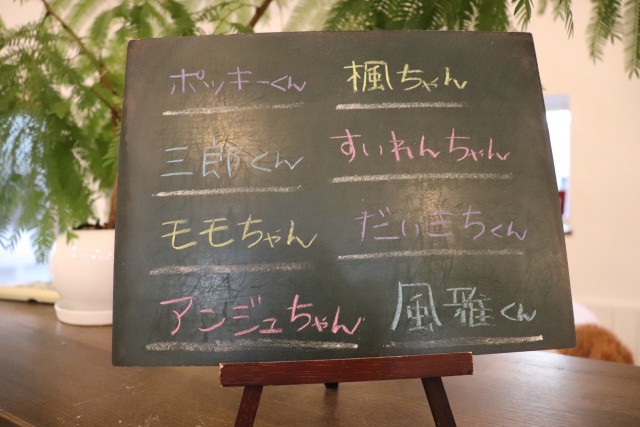 ポッキーくん
三郎くん
モモちゃん
アンジュちゃん
楓ちゃん
すいれんちゃん
だいきちくん
風雅くん